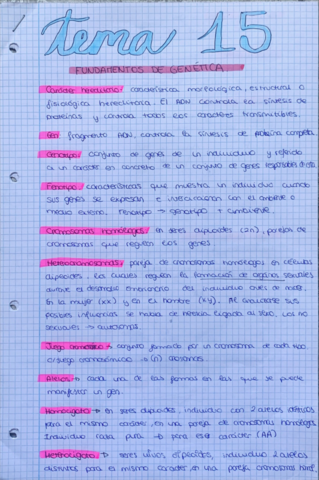 tema 15
FUNDAMENTOS DE GENÉTICA
Carácter hereditario/ característica morfológica, estructural o
fisiológica hereditaria. El ADN controla la síntesis de
proteínas y controla todos los caracteres transmitibles.
Gen/ fragmento ADN, controla la síntesis de proteína completa.
Genotipo/ conjunto de genes de un individuo y referido
a un carácter en concreto de un conjunto de genes responsables
Fenotipo/ características que muestra un individuo cuando
sus genes se expresan e interaccionan con el ambiente o
medio externo, Fenotipo → genotipo + ambiente.
Cromosomas homólogos/ en seres diploides (2n), parejas de
cromosomas que regulan los genes.
Heterocromosomas/ pareja de cromosomas homólogos en células
diploides, los cuales regulan la formación de órganos sexuales
durante el desarrollo embrionario del individuo antes de nacer.
En la mujer (xx) y en el hombre (xy). Al analizarse sus
posibles influencias se habla de herencia ligada al sexo. Los no
sexuales → autosomas.
Juego cromosómico → conjunto formado por un cromosoma de cada tipo
(n)
Alelos → cada una de las formas en las que se puede
manifestar un gen.
Homocigoto → en seres diploides, individuo con 2 alelos idénticos
para el mismo carácter, en una pareja de cromosomas homólogos.
Individuo raza pura → para ese carácter (AA)
Heterocigoto → seres vivos diploides, individuo 2 alelos
distintos para el mismo carácter en una pareja cromosomas